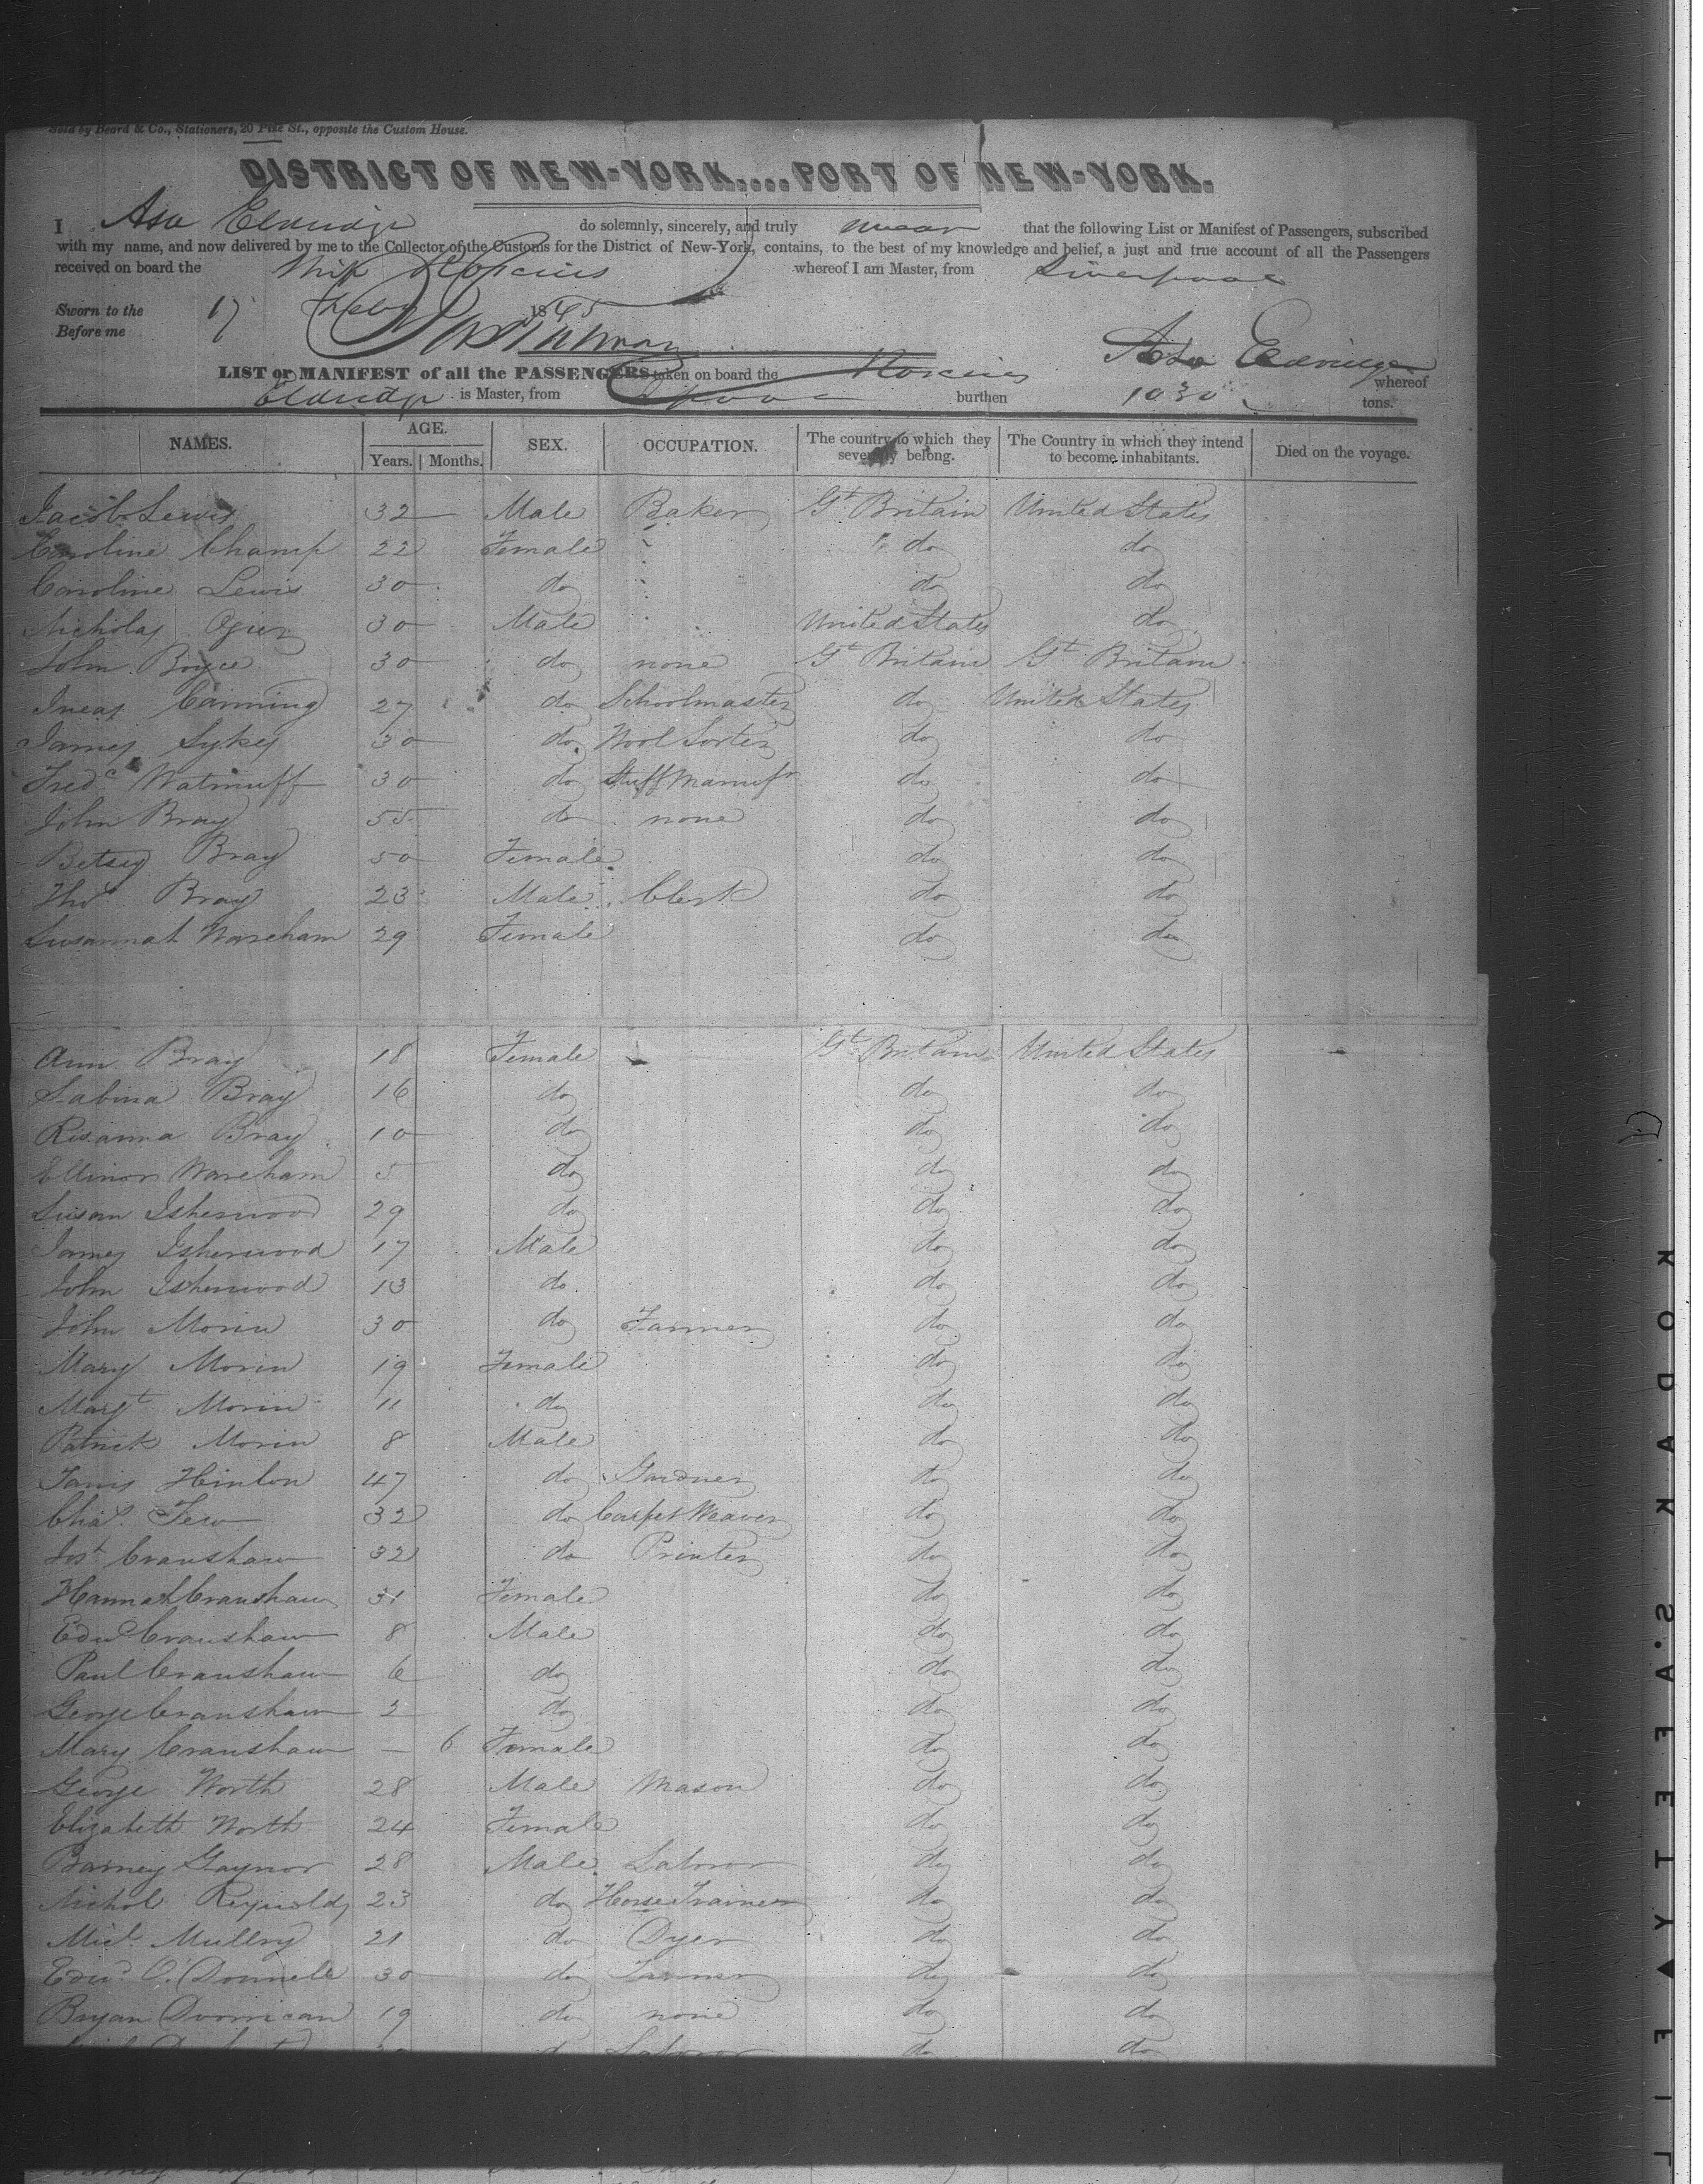 Sold by Beard & Co., Stationers, 20 Pine St., opposite the Custom House.
DISTRICT OF NEW-YORK....PORT OF NEW-YORK.
I Asa Eldridge do solemnly, sincerely, and truly swear that the following List or Manifest of Passengers, subscribed
with my name, and now delivered by me to the Collector of the Customs for the District of New-York, contains, to the best of my knowledge and belief, a just and true account of all the Passengers
received on board the Ship Roscius whereof I am Master, from Liverpool
Sworn to the 17 Feby 1845
Before me
Asa Eldridge
LIST or MANIFEST of all the PASSENGERS taken on board the Roscius whereof
Eldridge is Master, from L'pool burthen 1030 tons.
NAMES. AGE. SEX. OCCUPATION. The country to which they severally belong. The Country in which they intend to become inhabitants. Died on the voyage.
Years. Months.
Jacob Lewis 32 Male Baker Gt Britain United States
Caroline Champ 22 Female do do
Caroline Lewis 30 do do do
Nicholas Ogier 30 Male United States do
John Boyce 30 do none Gt Britain Gt Britain
Ineas Canning 27 do Schoolmaster do United States
James Sykes 30 do Wool Sorter do do
Fredc Watmuff 30 do Stuff Manufr do do
John Bray 55 do none do do
Betsey Bray 50 Female do do
Thos Bray 23 Male Clerk do do
Susannah Wareham 29 Female do do
Ann Bray 18 Female Gt Britain United States
Sabina Bray 16 do do do
Rosanna Bray 10 do do do
Ellinor Wareham 5 do do do
Susan Isherwood 29 do do do
James Isherwood 17 Male do do
John Isherwood 13 do do do
John Morin 30 do Farmer do do
Mary Morin 19 Female do do
Margt Morin 11 do do do
Patrick Morin 8 Male do do
Hinton 47 do Gardner do do
Chas. Tew 32 do Carpet Weaver do do
Jos. Cranshaw 32 do Printer do do
Hannah Cranshaw 31 Female do do
Edwd Cranshaw 8 Male do do
Paul Cranshaw 6 do do do
George Cranshaw 2 do do do
Mary Cranshaw — 6 Female do do
George North 28 Male Mason do do
Elizabeth North 24 Female do do
Barney Gaynor 28 Male Labour do do
Nichol Reynolds 23 do Horse Trainer do do
Micl. Mullry 21 do Dyer do do
Edwd. O. Donnell 30 do Farmer do do
Bryan Dornican 19 do none do do
do Labour do do
KODAK SAFETY FIL